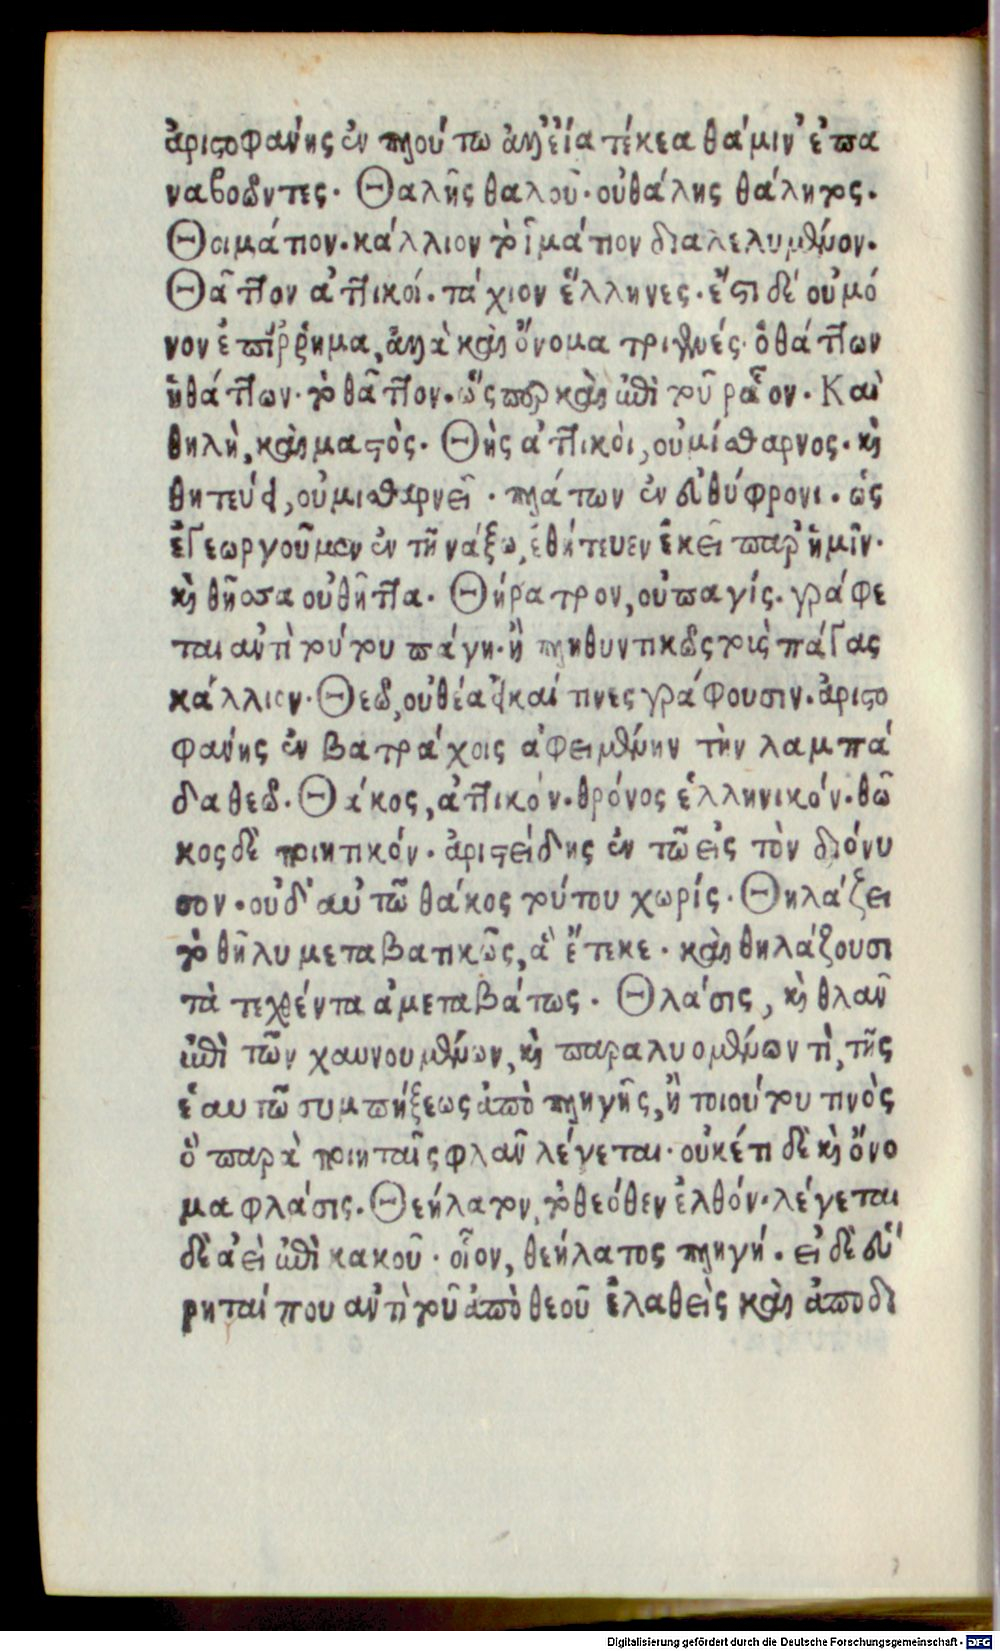 ἀριστοφάνης ἐν πλούτω ἀλλ᾽ εἶα τέκεα θάμιν᾽ ἐπα
ναβοῶντες. Θαλῆς θαλοῦ. οὐ θάλης θάλητος.
Θοιμάτιον. κάλλιον τὸ ἱμάτιον διαλελυμένον.
Θᾶττον ἀττικοί. τάχιον ἕλληνες. ἔστι δὲ οὐ μό
νον ἐπίρρημα, ἀλλὰ καὶ ὄνομα τριγενές. ὁ θάττων
ἡ θάττων. τὸ θᾶττον. ὥσπερ καὶ ἐπὶ τοῦ ῥᾷον. Καὶ
θηλὴ, καὶ μαστός. Θὴς ἀττικοὶ, οὐ μίσθαρνος. καὶ
θητεύει, οὐ μισθαρνεῖ. πλάτων ἐν εὐθύφρονι. ὡς
ἐγεωργοῦμεν ἐν τῆ νάξω, ἐθήτευεν ἐκεῖ παρ᾽ ἡμῖν.
καὶ θῆσσα οὐ θῆττα. Θήρατρον, οὐ παγίς. γράφε
ται ἀντὶ τούτου πάγη. ἢ πληθυντικῶς τοὺς πάγας
κάλλιον. Θεῶ, οὐ θέασαι καί τινες γράφουσιν. ἀριστο
φάνης ἐν βατράχοις ἀφειμένην τὴν λαμπά
δα θεῶ. Θάκος, ἀττικόν. θρόνος ἑλληνικόν. θῶ
κος δὲ ποιητικόν. ἀριστείδης ἐν τῶ εἰς τὸν διόνυ
σον. οὐδ᾽ αὐτῶ θάκος τούτου χωρίς. Θηλάζει
τὸ θῆλυ μεταβατικῶς, ἃ ἔτεκε. καὶ θηλάζουσι
τὰ τεχθέντα ἀμεταβάτως. Θλάσις, καὶ θλᾶν
ἐπὶ τῶν χαυνουμένων, καὶ παραλυομένων τὶ, τῆς
ἑαυτῶ συμπήξεως ἀπὸ πληγῆς, ἢ τοιούτου τινὸς
ὃ παρὰ ποιηταῖς φλᾶν λέγεται. οὐκέτι δὲ καὶ ὄνο
μα φλάσις. Θεήλατον, τὸ θεόθεν ἐλθόν. λέγεται
δὲ ἀεὶ ἐπὶ κακοῦ. οἷον, θεήλατος πληγή. εἰ δὲ εὕ
ρηταί που ἀντὶ τοῦ ἀπὸ θεοῦ ἐλαθεὶς καὶ ἀποδι
Digitalisierung gefördert durch die Deutsche Forschungsgemeinschaft - DFG